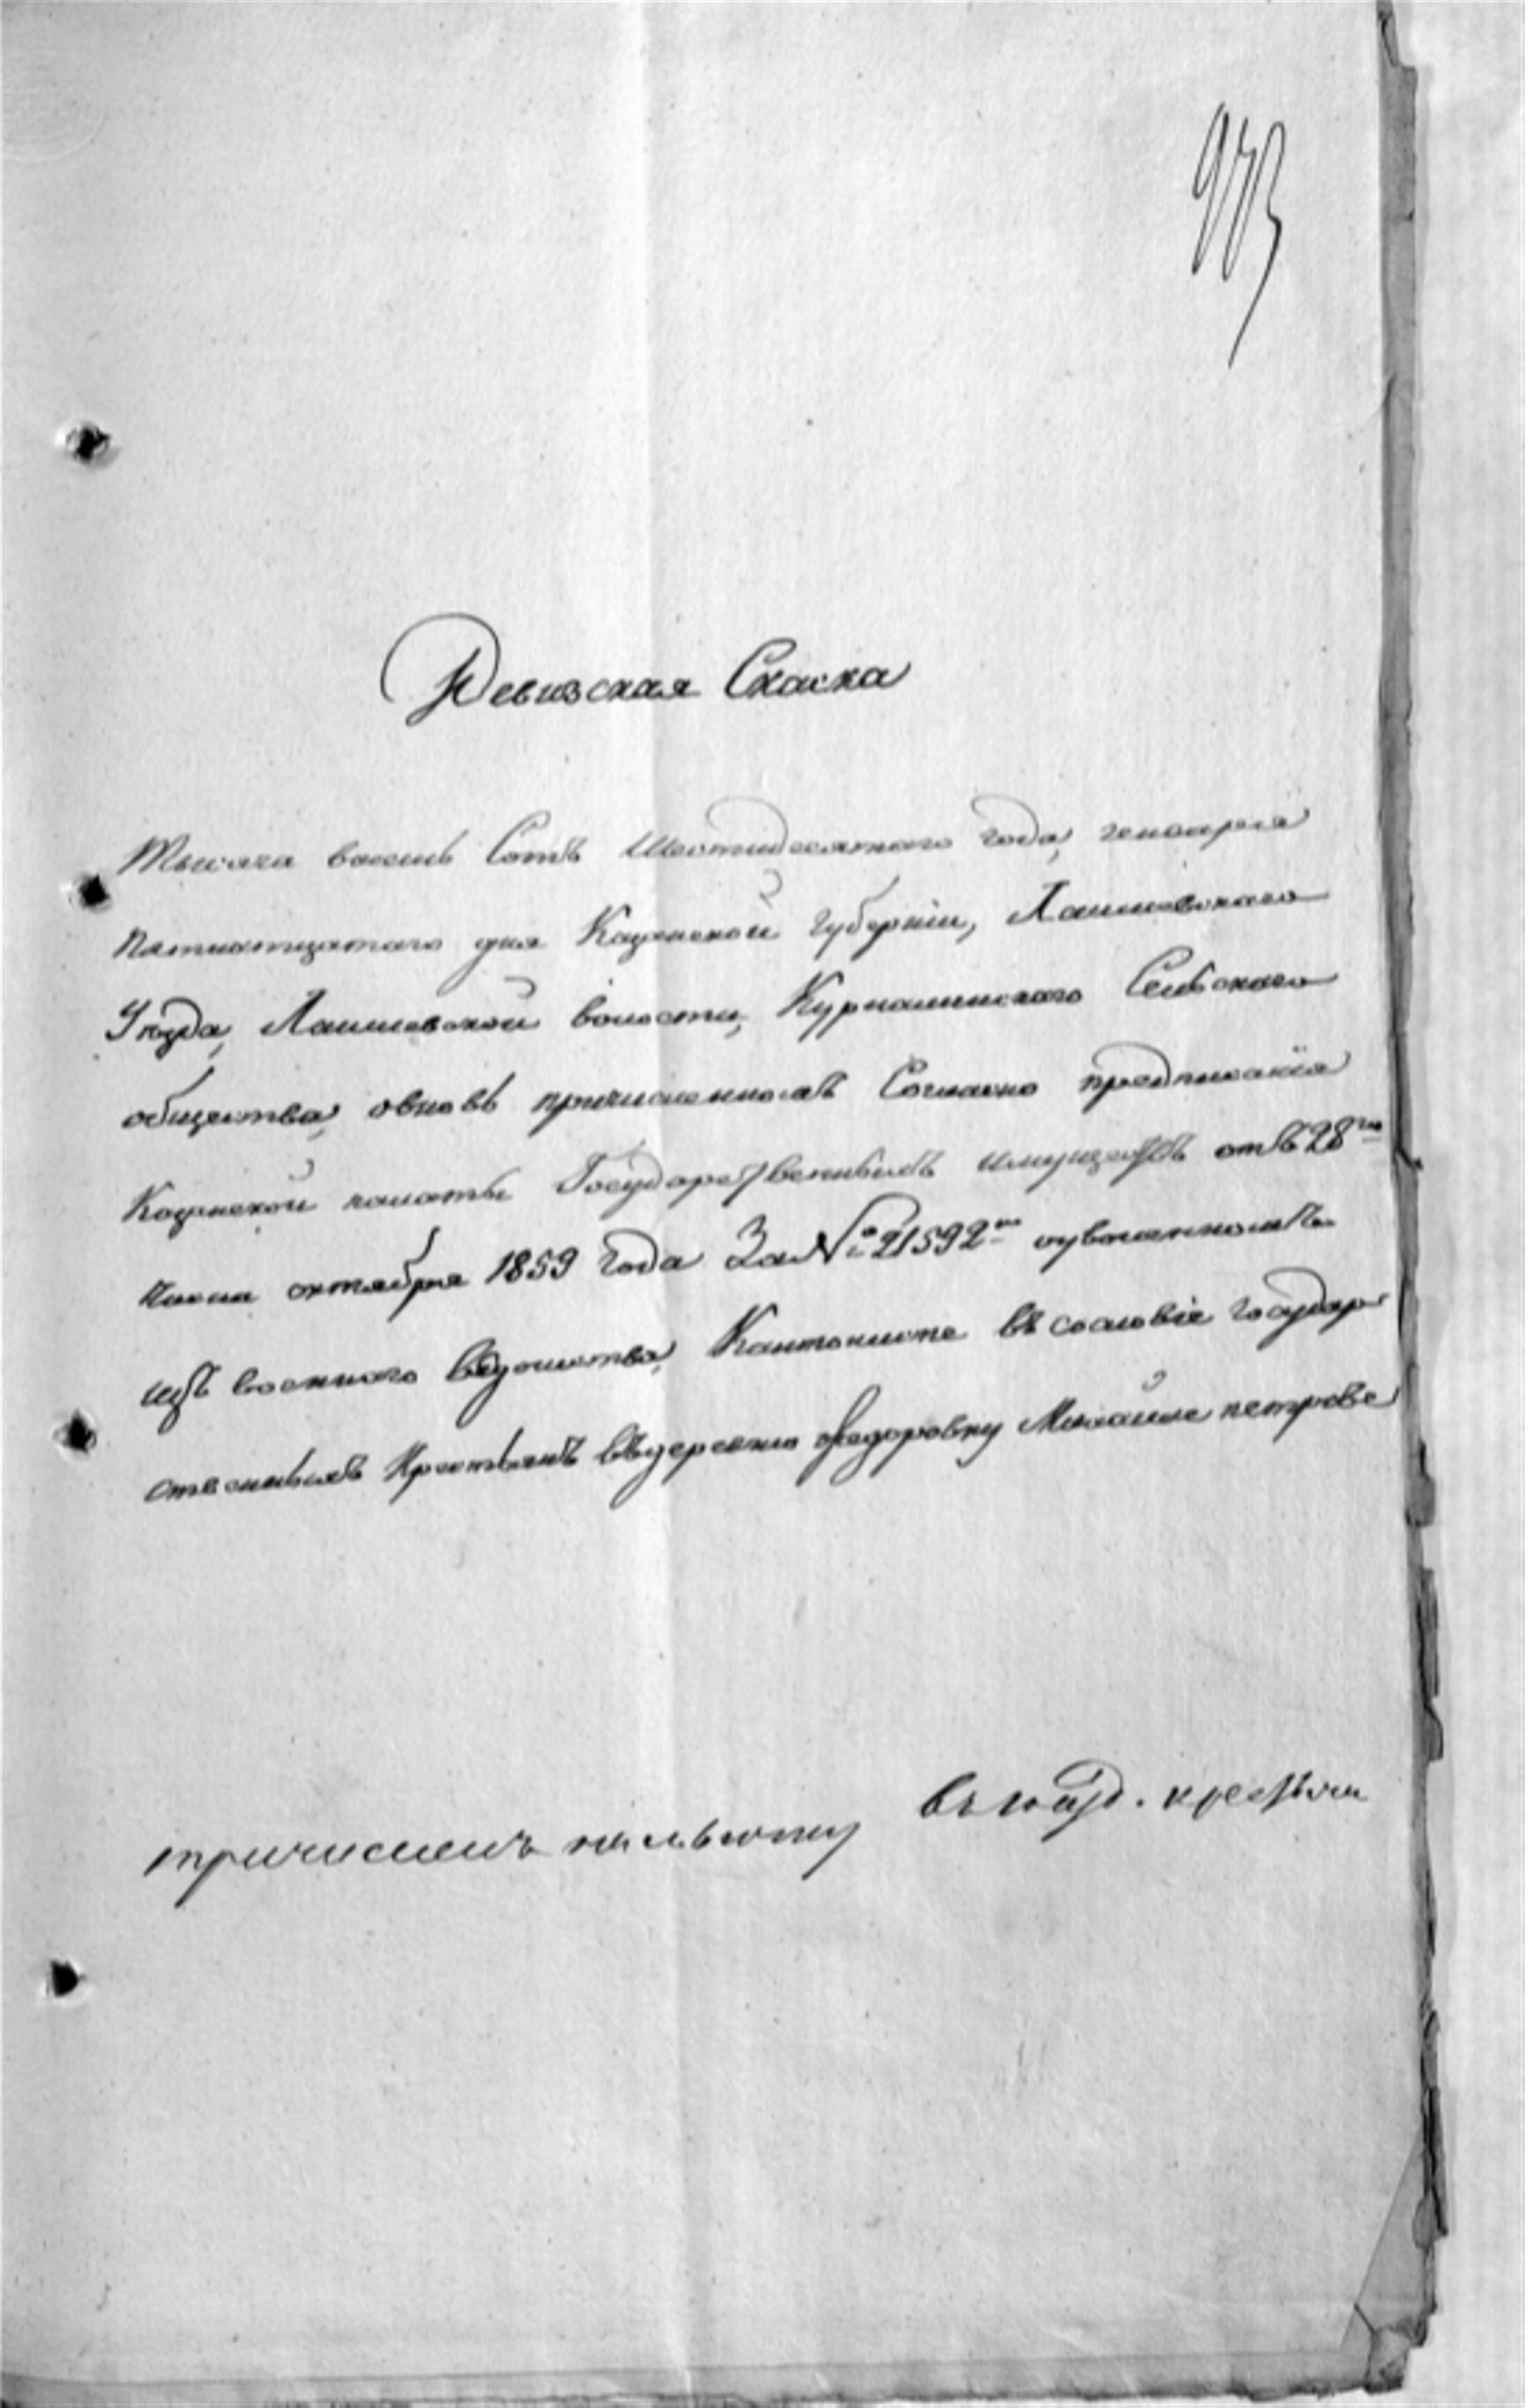 973
Ревизская Скаска
Тысяча восемь Сотъ Шестидесятого года, генваря
пятнатцатого дня Казанской Губернiи, Лаишевскаго
Уезда, Лаишевской волости, Курнашинского Сельскаго
общества, овновь причисленномъ Согласно предписанiя
Казанской палаты Государственныхъ имуществъ отъ 28го
числа октября 1859 года За № 21592м оуволенномъ
изъ военного ведомства, Кантонисте въ сословiе государ
ственныхъ Крестьянъ въ деревню Федоровку Михаиле петрове
причисленъ на льготу
въ госуд. крестьяни